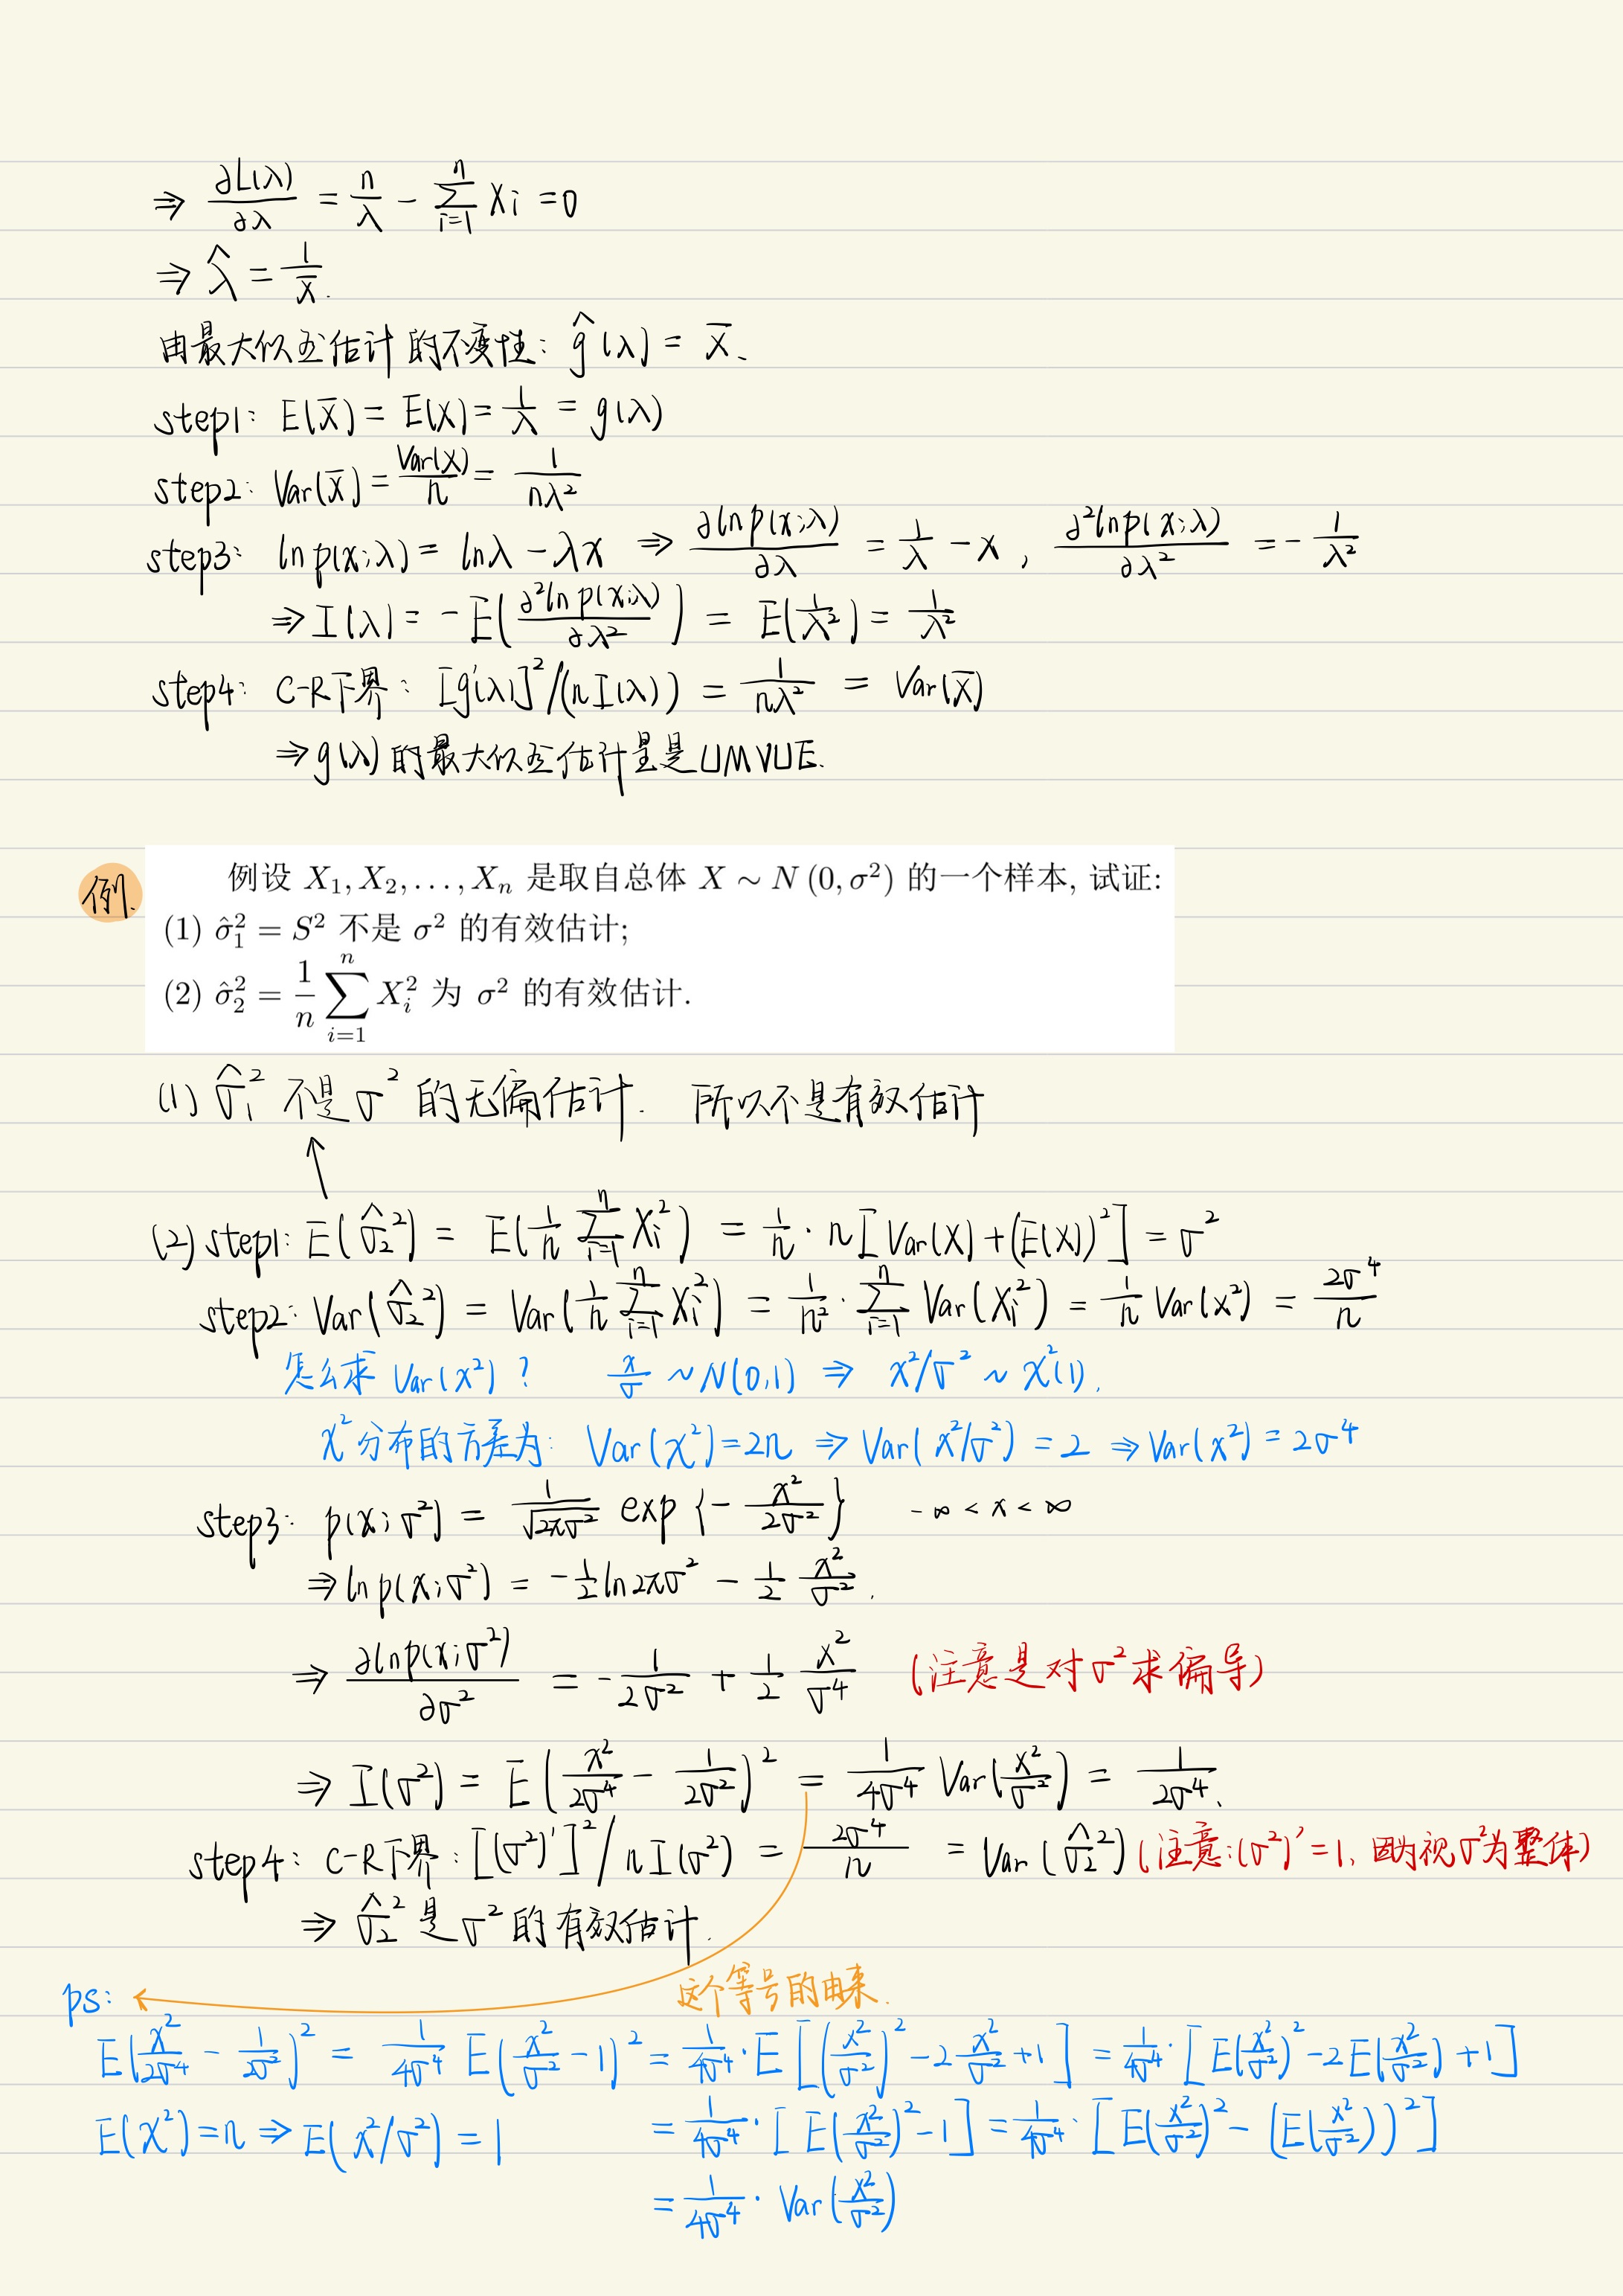 ⇒ ∂L(λ)/∂λ = n/λ - ∑_{i=1}^{n} Xi = 0
⇒ λ̂ = 1/x̄.
由最大似然估计的不变性: ĝ(λ) = X̄.
step1: E(X̄) = E(X) = 1/λ = g(λ)
step2: Var(X̄) = Var(X)/n = 1/(nλ²)
step3: ln p(x;λ) = lnλ - λx ⇒ ∂ln p(x;λ)/∂λ = 1/λ - x , ∂²ln p(x;λ)/∂λ² = - 1/λ²
⇒ I(λ) = - E(∂²ln p(x;λ)/∂λ²) = E(1/λ²) = 1/λ²
step4: C-R下界: [g'(λ)]²/(nI(λ)) = 1/(nλ²) = Var(X̄)
⇒ g(λ) 的最大似然估计量是UMVUE.
例. 例设 X₁, X₂, …, Xₙ 是取自总体 X ~ N (0, σ²) 的一个样本, 试证:
(1) σ̂₁² = S² 不是 σ² 的有效估计;
(2) σ̂₂² = 1/n ∑_{i=1}^{n} Xᵢ² 为 σ² 的有效估计.
(1) σ̂₁² 不是 σ² 的无偏估计. 所以不是有效估计
↑
(2) step1: E(σ̂₂²) = E(1/n ∑_{i=1}^{n} Xi²) = 1/n · n[Var(X) + (E(X))²] = σ²
step2: Var(σ̂₂²) = Var(1/n ∑_{i=1}^{n} Xi²) = 1/n² · ∑_{i=1}^{n} Var(Xi²) = 1/n Var(x²) = 2σ⁴/n
怎么求 Var(x²) ? x/σ ~ N(0,1) ⇒ x²/σ² ~ χ²(1).
χ²分布的方差为: Var(χ²) = 2n ⇒ Var(x²/σ²) = 2 ⇒ Var(x²) = 2σ⁴
step3: p(x;σ²) = 1/√(2πσ²) exp {- x²/(2σ²)} -∞ < x < ∞
⇒ ln p(x;σ²) = -1/2 ln2πσ² - 1/2 x²/σ².
⇒ ∂ln p(x;σ²)/∂σ² = - 1/(2σ²) + 1/2 x²/σ⁴ (注意是对σ²求偏导)
⇒ I(σ²) = E(x²/(2σ⁴) - 1/(2σ²))² = 1/(4σ⁴) Var(x²/σ²) = 1/(2σ⁴).
step4: C-R下界: [(σ²)']²/nI(σ²) = 2σ⁴/n = Var(σ̂₂²) (注意:(σ²)'=1, 因为视σ²为整体)
⇒ σ̂₂² 是 σ² 的有效估计.
ps: 这个等号的由来.
E(x²/(2σ⁴) - 1/(2σ²))² = 1/(4σ⁴) E(x²/σ² - 1)² = 1/(4σ⁴) · E[(x²/σ²)² - 2 x²/σ² + 1] = 1/(4σ⁴) · [E(x²/σ²)² - 2E(x²/σ²) + 1]
E(χ²) = n ⇒ E(x²/σ²) = 1 = 1/(4σ⁴) · [E(x²/σ²)² - 1] = 1/(4σ⁴) · [E(x²/σ²)² - (E(x²/σ²))²]
= 1/(4σ⁴) · Var(x²/σ²)